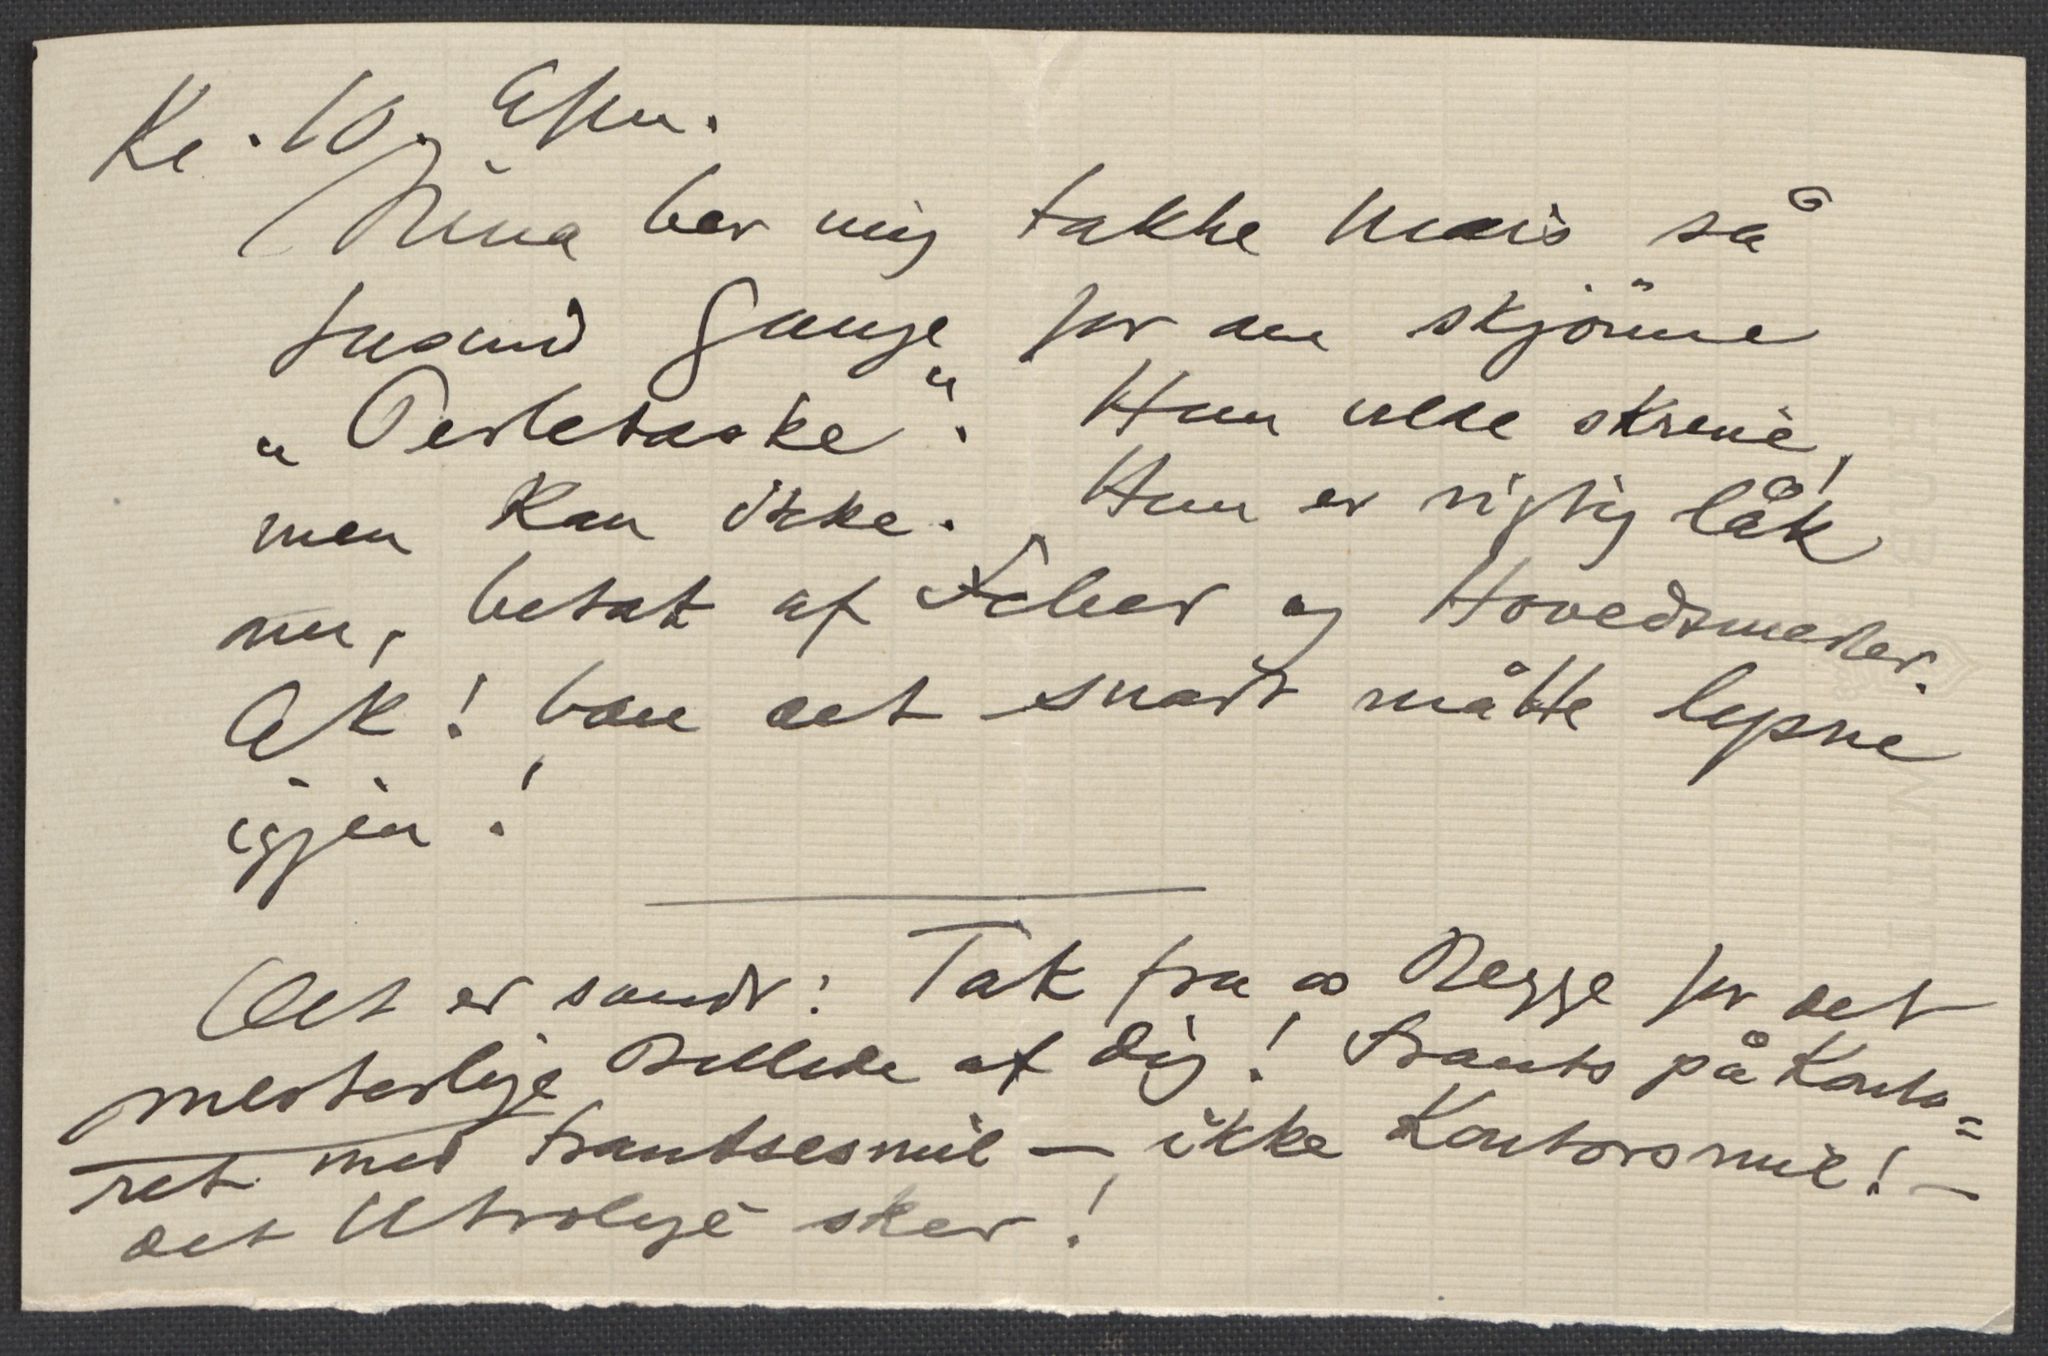 Kl. 10. Eftm.
Nina ber mig takke Mais så
tusund Gange for den skjönne
„Perletaske“. Hun vilde skrive,
men kan ikke. Hun er rigtig låk
nu, betat af Feber og Hovedsmerter.
Ak! Om det snart måtte lysne
igjen!
Det er sandt: Tak fra os Begge for det
mesterlige Billede af Dig! Frants på Konto=
ret med Frantsesmil – ikke Kontorsmil! –
det Utrolige sker!